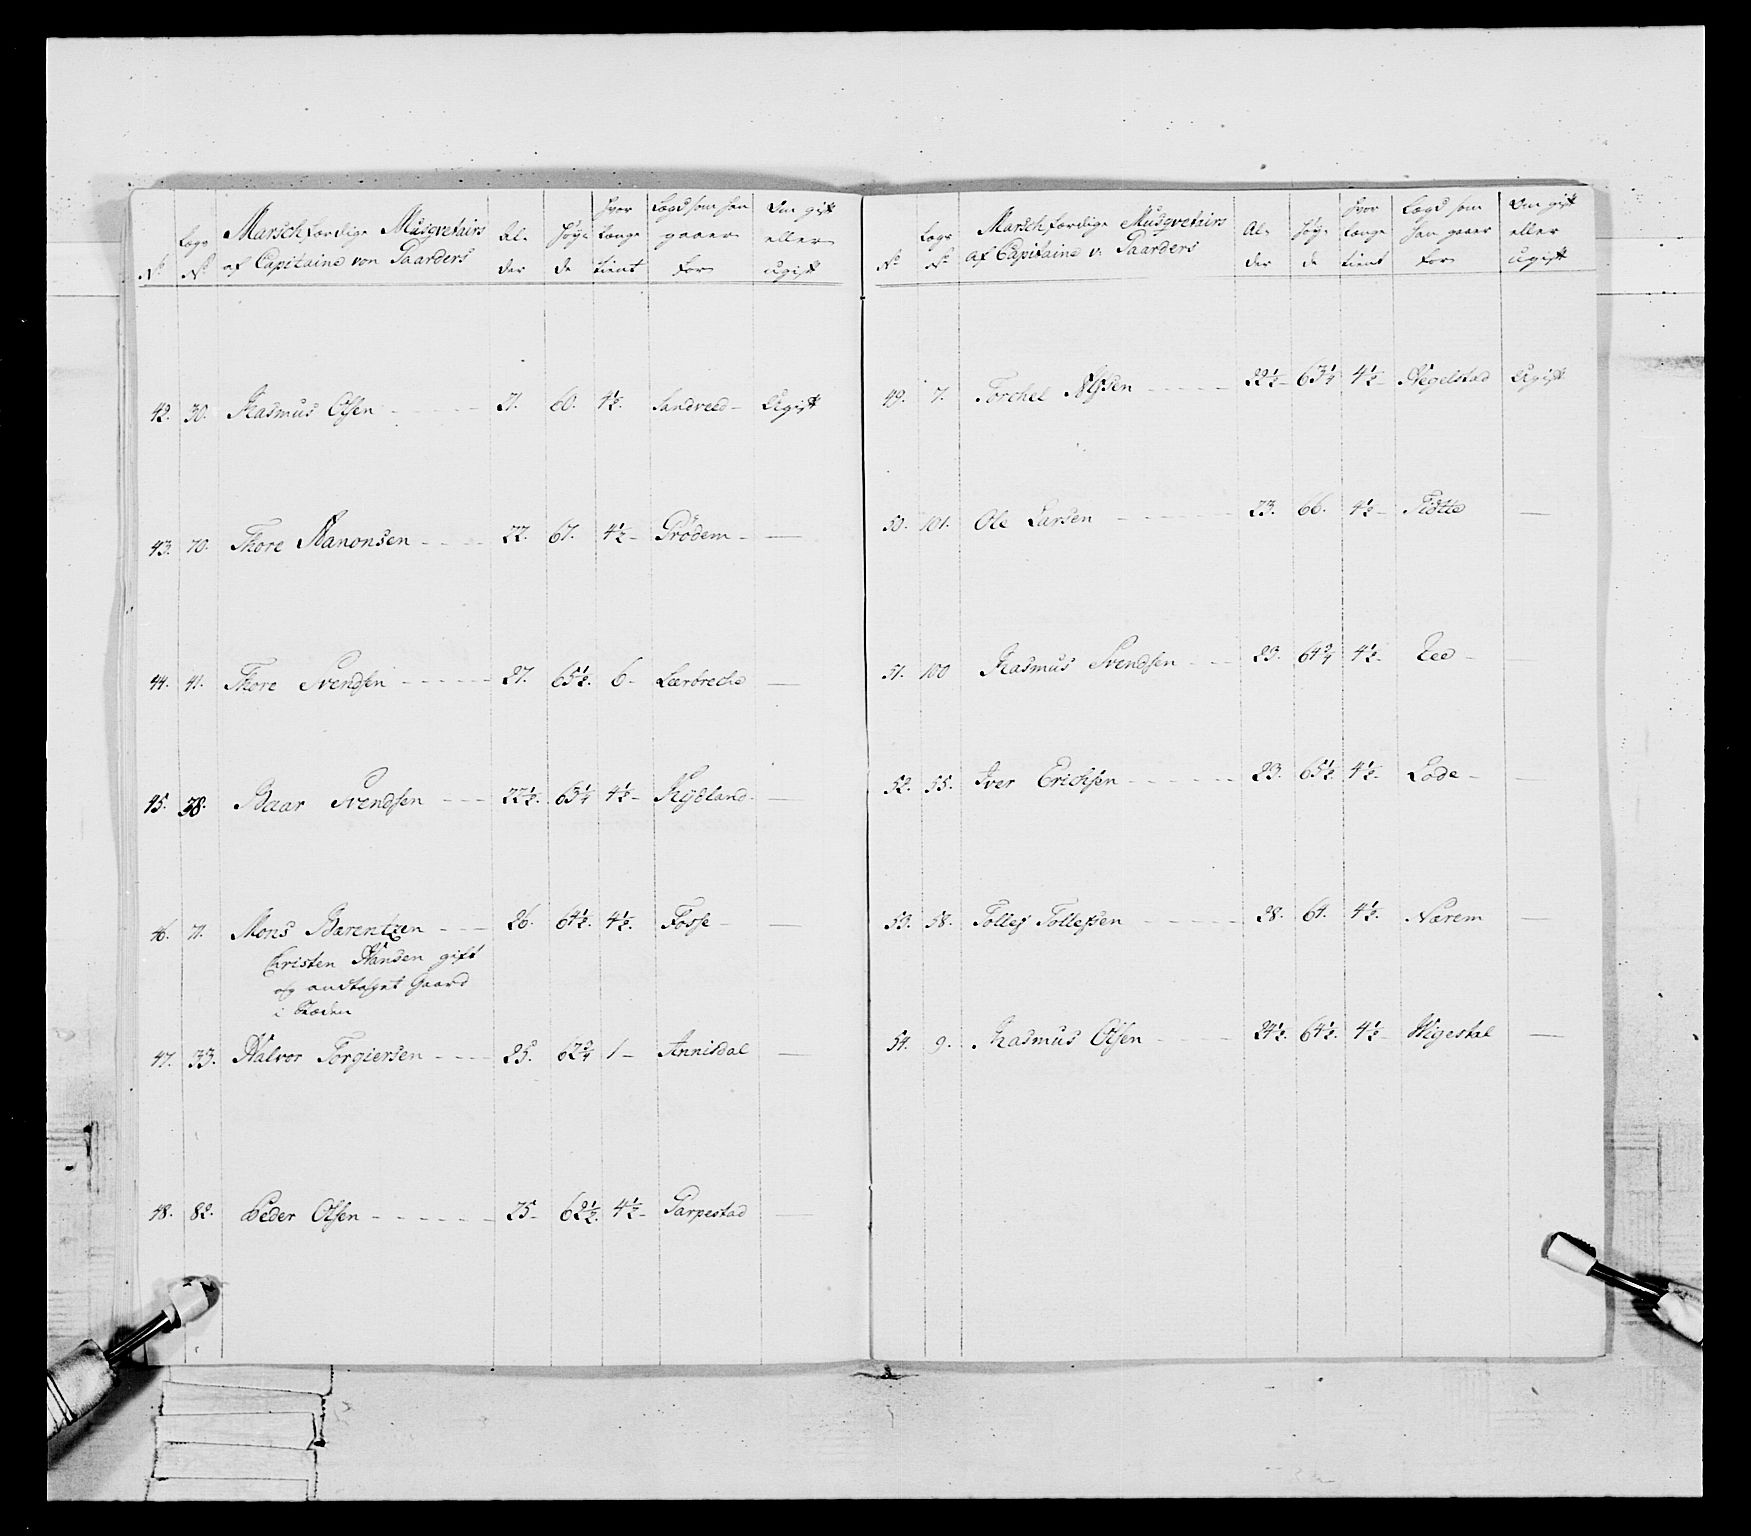 N° Lægs N° Marschfærdige Musqvetairs af Capitaine von Paarders Al- der Høy- de Hvor længe tient Lægd som han gaaer for Om gift eller ugift
42. 30. Rasmus Olsen 21. 60. 4½. Sandved Ugift
43. 70. Thore Aanonsen 22. 67. 4½ Grödem —
44. 41. Thore Svendsen 27. 65½. 6 Lerbreche —
45. 38. Baar Svendsen 22½. 63¼ 4½ Rydland —
46. 71. Mons Bærentzen 26. 64½. 4½. Fosse —
Christen Hansen gift
og andtaget Gaard
i Stæden
47. 33. Halvor Torgiersen 25. 62¾ 1 Annisdal —
48. 82. Peder Olsen 25 62½. 4½ Garpestad —
N° Lægs N° Marschfærdige Musqvetairs af Capitaine v. Paarders Al- der Høy- de Hvor længe tient Lægd som han gaaer for Om gift eller ugift
49. 7. Torchel 22½ 63¼ 4½ Hegelstad Ugift
50. 101. Ole Larsen 23. 66. 4½ Tiötte —
51. 100 Rasmus Svendsen 23. 64¾ 4½ Eee —
52. 55. Iver Erichsen 23. 65½ 4½ Lode —
53. 58. Tolles Tollessen 28. 64. 4½. Nærem —
54. 9. Rasmus Olsen 24½. 64½. 4½ Wigestal —